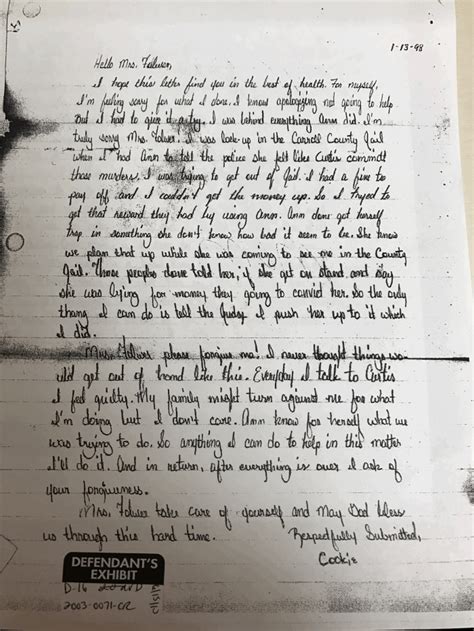 1-13-98
Hello Mrs. Folwer,
I hope this letter find you in the best of health. For myself,
I'm feeling sorry for what I done. I know apologizing not going to help
But I had to give it a try. I was behind everything Ann did. I'm
truly sorry Mrs. Folwer. I was lock-up in the Carroll County Jail
when I had Ann to tell the police she felt like Curtis commit
those murders. I was trying to get out of Jail. I had a fine to
pay off and I couldn't get the money up. So I tryed to
get that reward they had by using Ann. Ann done get herself
trap in something she don't know how bad it seem to be. She know
we plan that up while she was coming to see me in the County
Jail. Those people done told her, if she get on stand and say
she was lying for money they going to convid her. So the only
thang I can do is tell the Judge I push her up to it which
I did.
Mrs. Folwer please forgive me! I never thought things wo-
uld get out of hand like this. Everyday I talk to Curtis
I feel guilty. My family misft turn against me for what
I'm doing but I don't care. Ann know for herself what we
was trying to do. So anything I can do to help in this matter
I'll do it. And in return, after everything is over I ask of
your forgiveness.
Mrs. Folwer take care of yourself and May God bless
us through this hard time.
Respedfully Submitted,
Cookie
DEFENDANT'S
EXHIBIT
D-16
2003-0071-CR